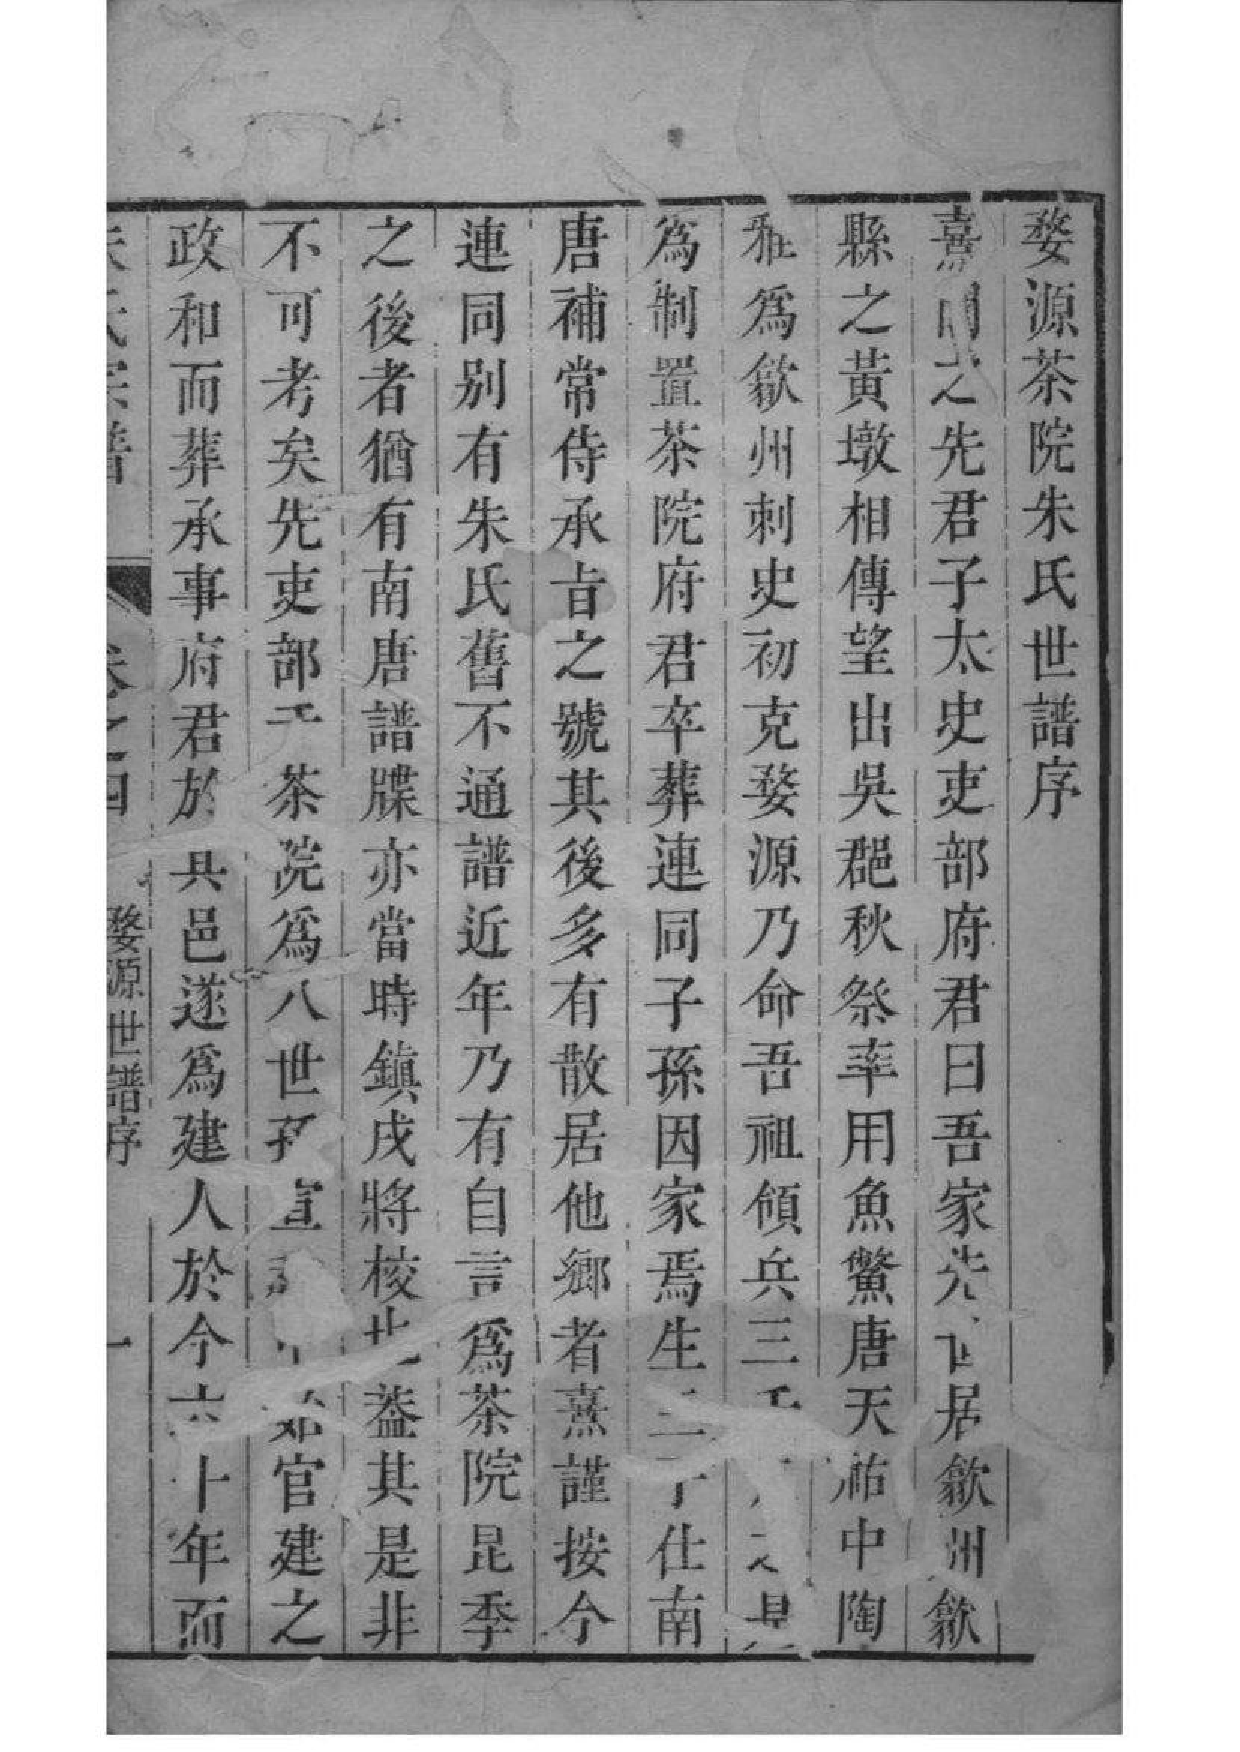 婺源茶院朱氏世譜序
熹聞之先君子太史吏部府君曰吾家先世居歙州歙
縣之黃墩相傳望出吳郡秋祭率用魚鱉唐天祐中陶
雅爲歙州刺史初克婺源乃命吾祖領兵三千戍之是
爲制置茶院府君卒葬連同子孫因家焉生三子仕南
唐補常侍承㫖之號其後多有散居他鄉者熹謹按今
連同别有朱氏舊不通譜近年乃有自言爲茶院昆季
之後者猶有南唐譜牒亦當時鎮戌將校也葢其是非
不可考矣先吏部于茶院爲八世孫宣和中始官建之
政和而葬承事府君於其邑遂爲建人於今六十年而
朱氏宗譜 卷之四 婺源世譜序 一